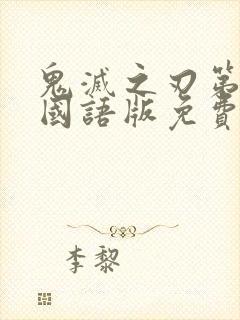 鬼滅之刃第
國語版免費
李黎